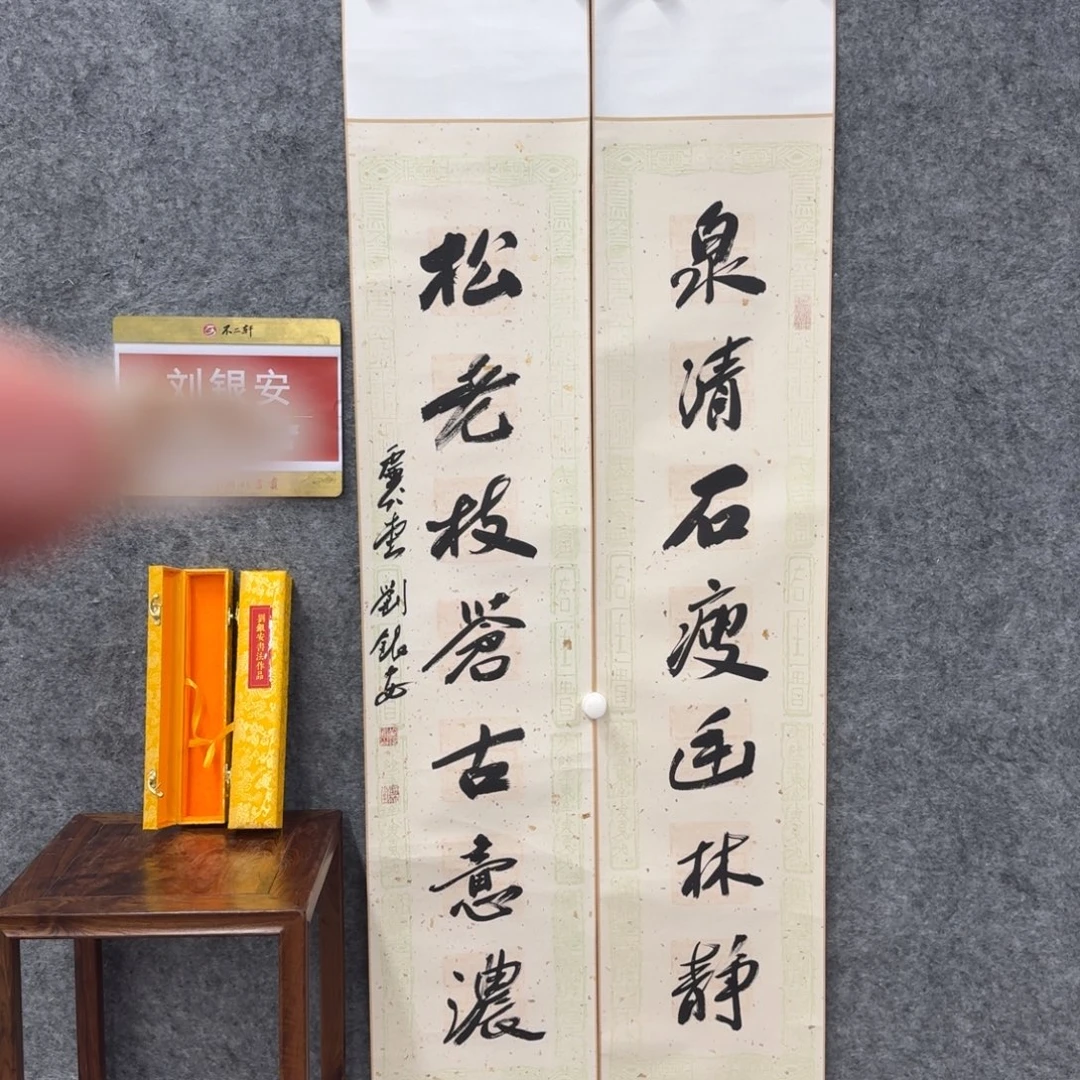 泉清石瘦幽林静
松老枝蒼古意濃
堂 劉銀安
不二轩
刘银安
劉銀安書法作品